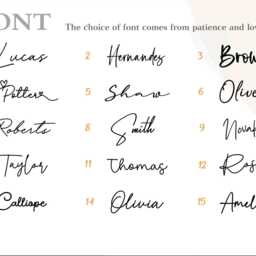 ONT The choice of font comes from patience and lov
Lucas 2 Hernandes 3 Brow
Potter 5 Shaw 6 Olive
Roberts 8 Smith 9 Novak
Taylor 11 Thomas 12 Ros
Calliope 14 Olivia 15 Amel